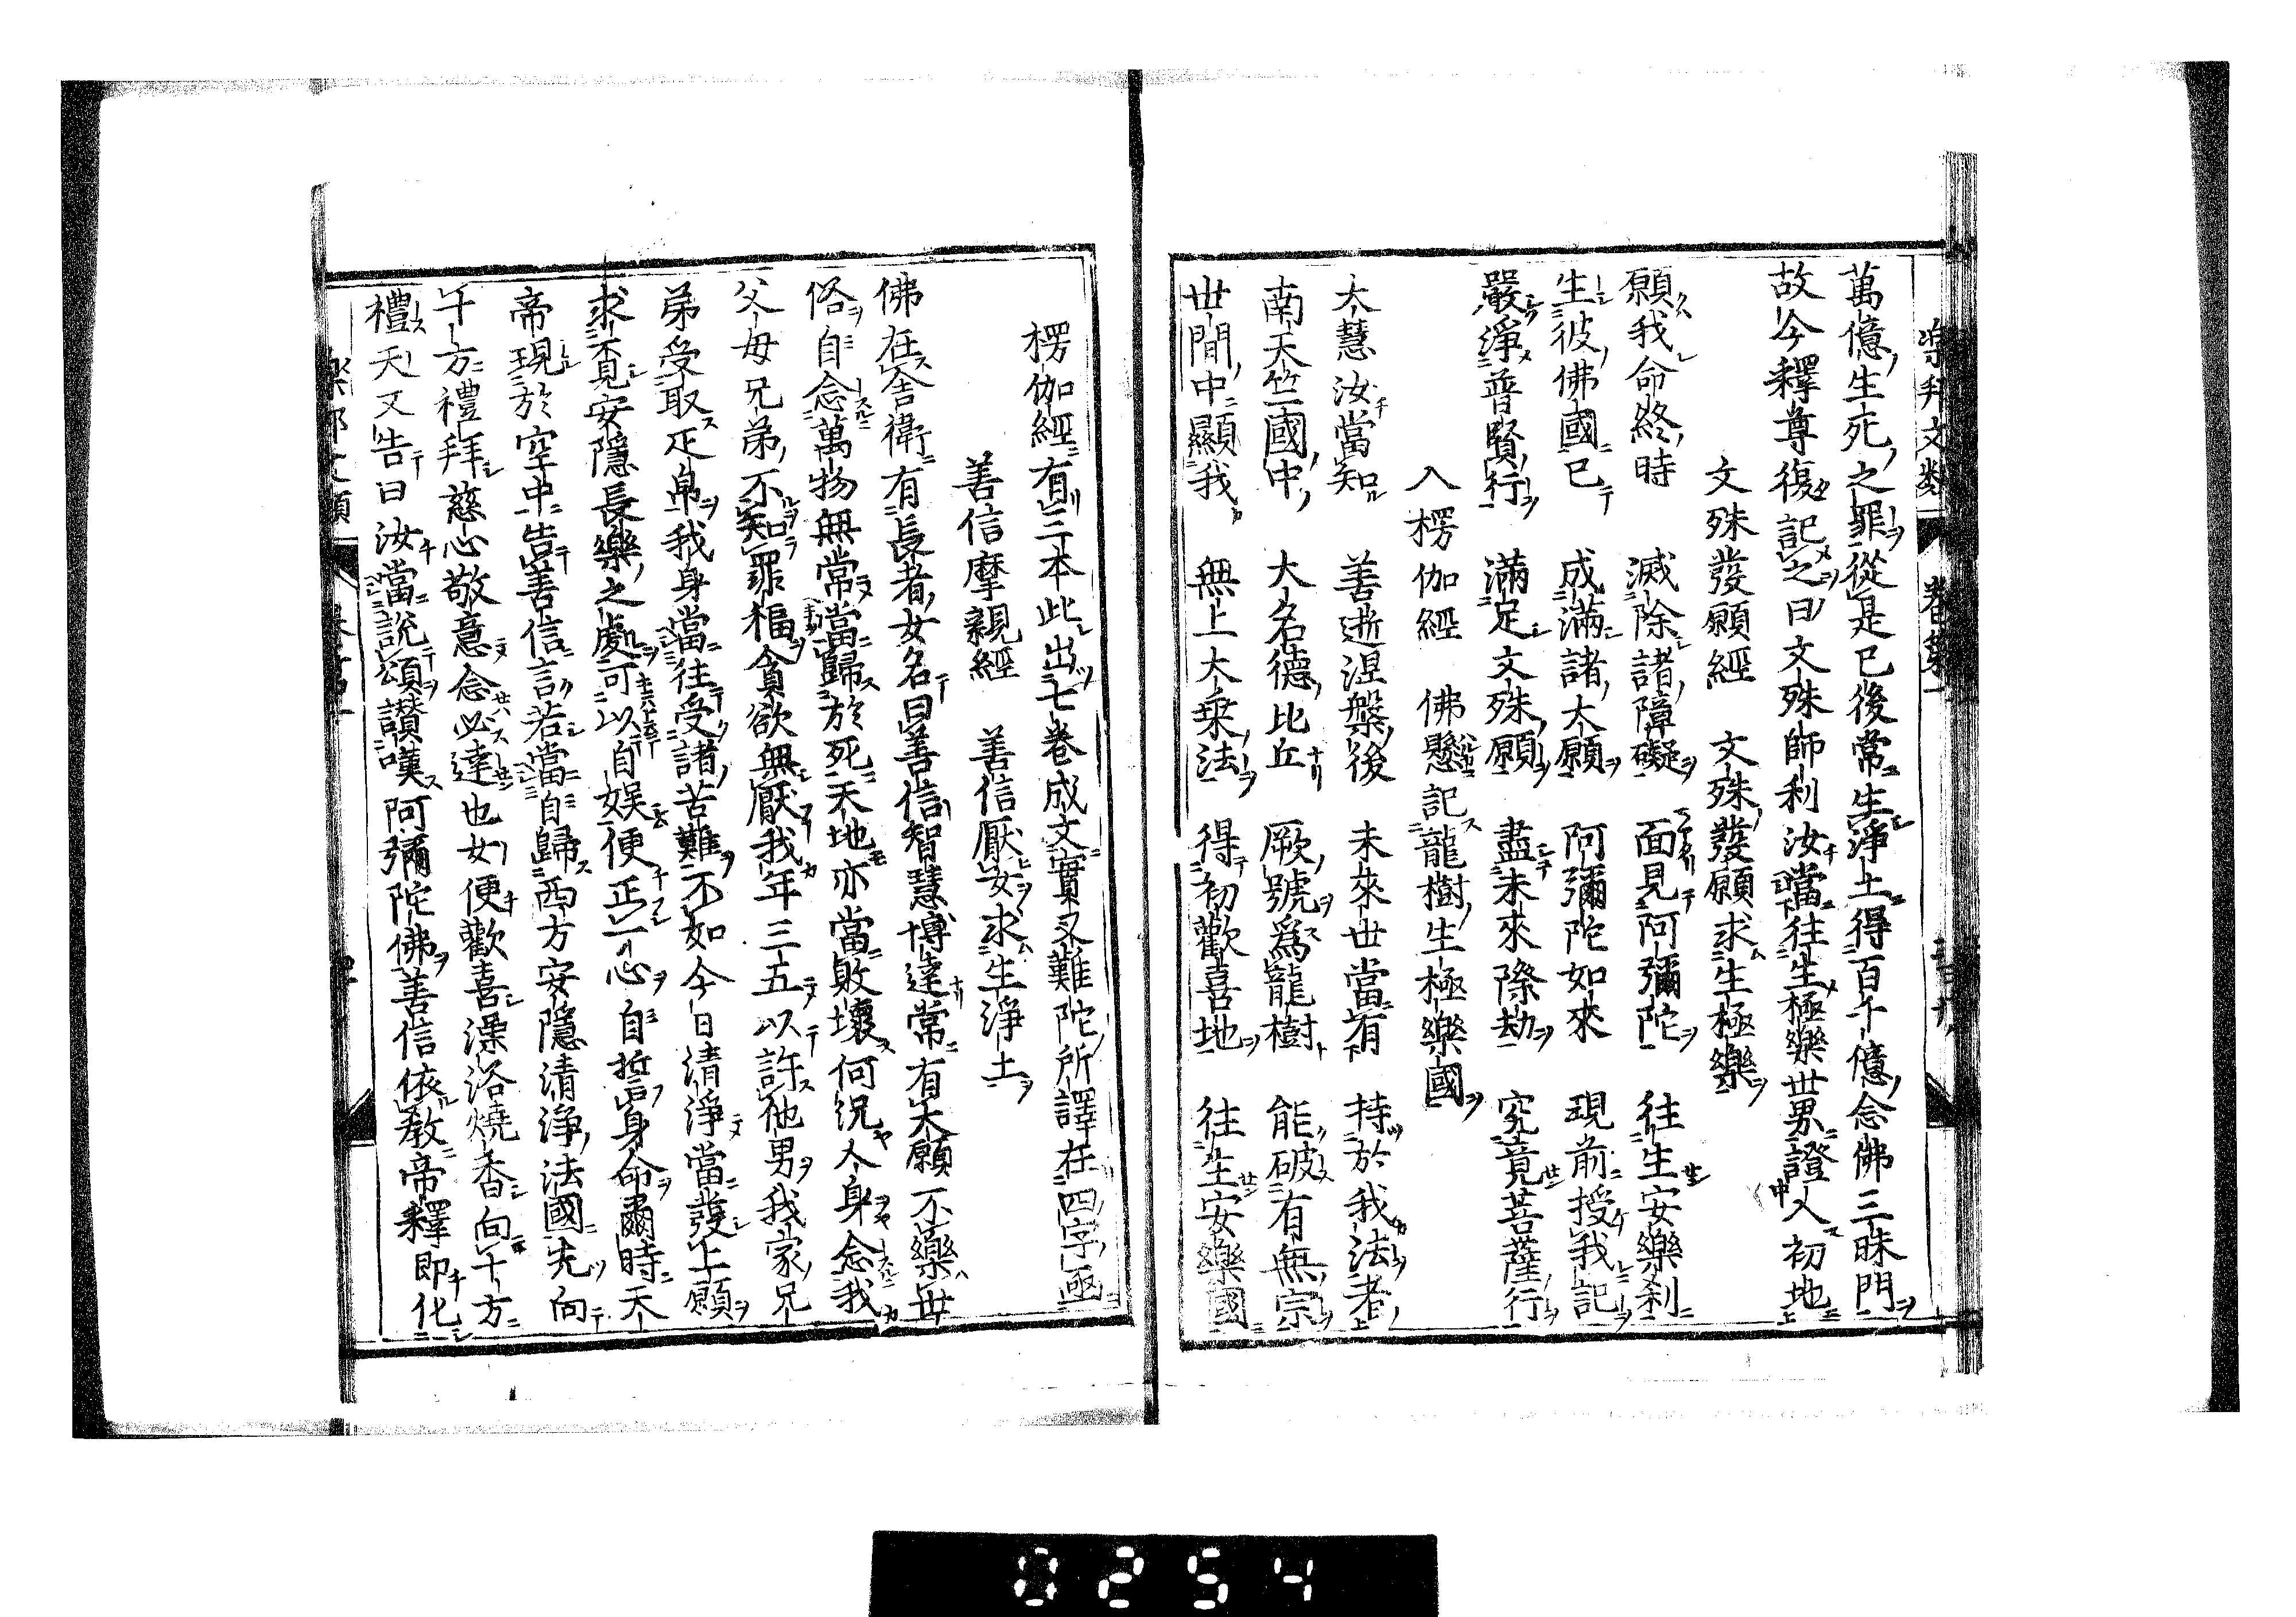 萬億生死之罪從是已後常生淨土得百千億念佛三昧門
故今釋尊復記之曰文殊師利汝當往生極樂世界證入初地
文殊發願經　文殊發願求生極樂
願我命終時　滅除諸障礙　面見阿彌陀　往生安樂刹
生彼佛國已　成滿諸大願　阿彌陀如來　現前授我記
嚴淨普賢行　滿足文殊願　盡未來際劫　究竟菩薩行
入楞伽經　佛懸記龍樹生極樂國
大慧汝當知　善逝涅槃後　未來世當有　持於我法者
南天竺國中　大名德比丘　厥號爲龍樹　能破有無宗
世間中顯我　無上大乘法　得初歡喜地　往生安樂國
楞伽經有三本此出七卷成文實叉難陀所譯在四字函
善信摩親經　善信厭女求生淨土
佛在舍衛有長者女名曰善信智慧博達常有大願不樂世
俗自念萬物無常當歸於死天地亦當敗壞何況人身念我
父母兄弟不知罪福貪欲無厭我年三五以許他男我家兄
弟受取疋帛我身當往受諸苦難不如今日清淨當發上願
求不見安隱長樂之處可以自娛便正一心自誓身命爾時天
帝現於空中告善信言若當自歸西方安隱清淨法國先向
千方禮拜慈心敬意念必達也女便歡喜澡浴燒香向千方
禮天又告曰汝當説頌讃嘆阿彌陀佛善信依教帝釋即化
0254